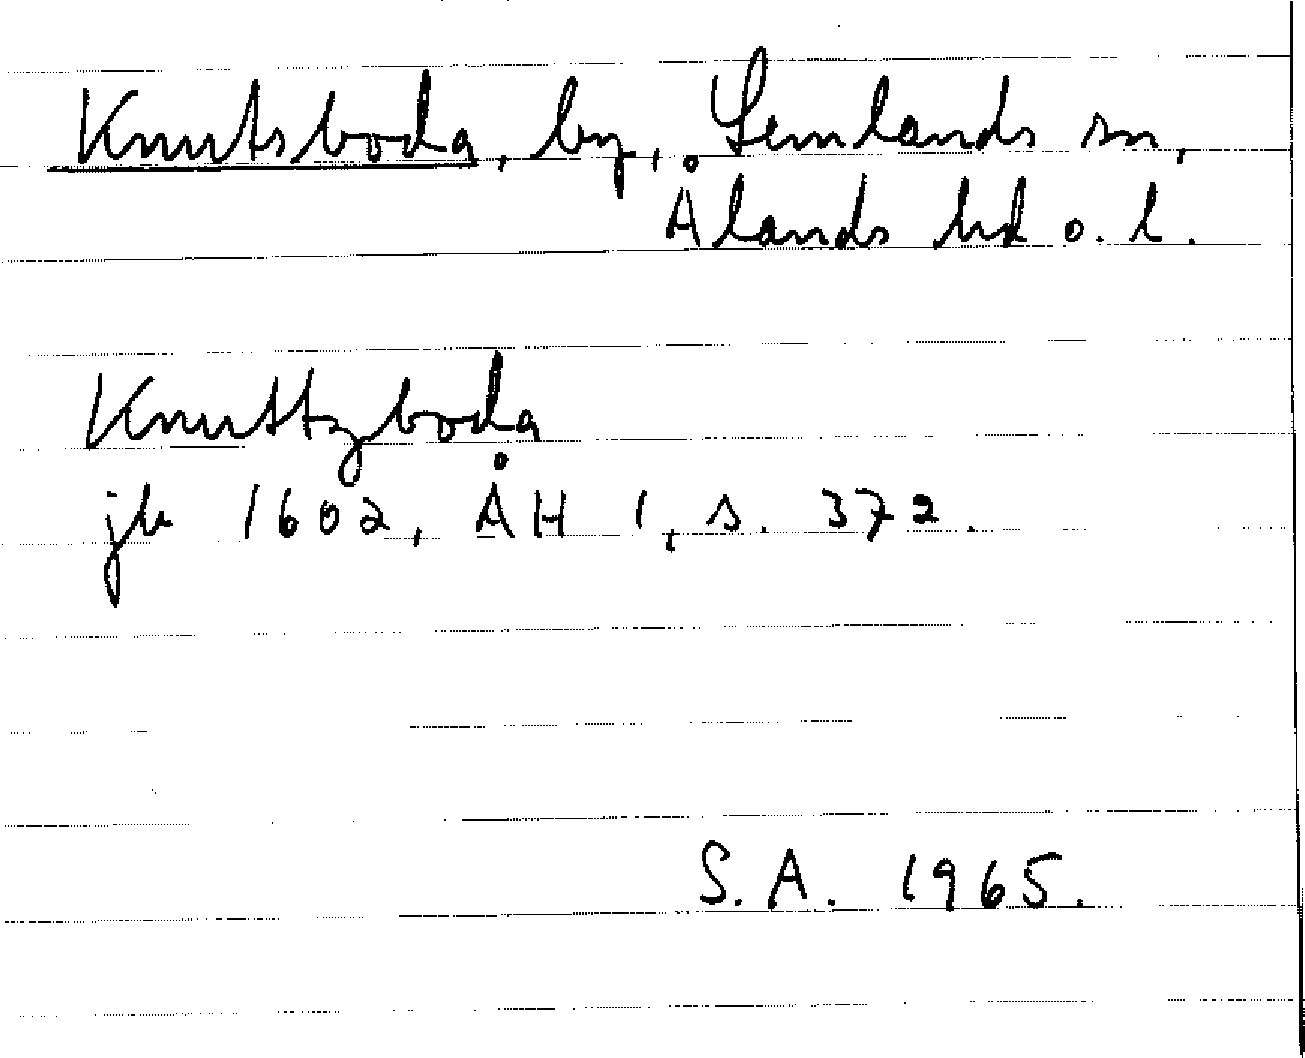 Knutsboda, by, Lemlands sn,
Ålands hd o. l.
Knuttzboda
jb 1602, ÅH 1, s. 372.
S.A. 1965.